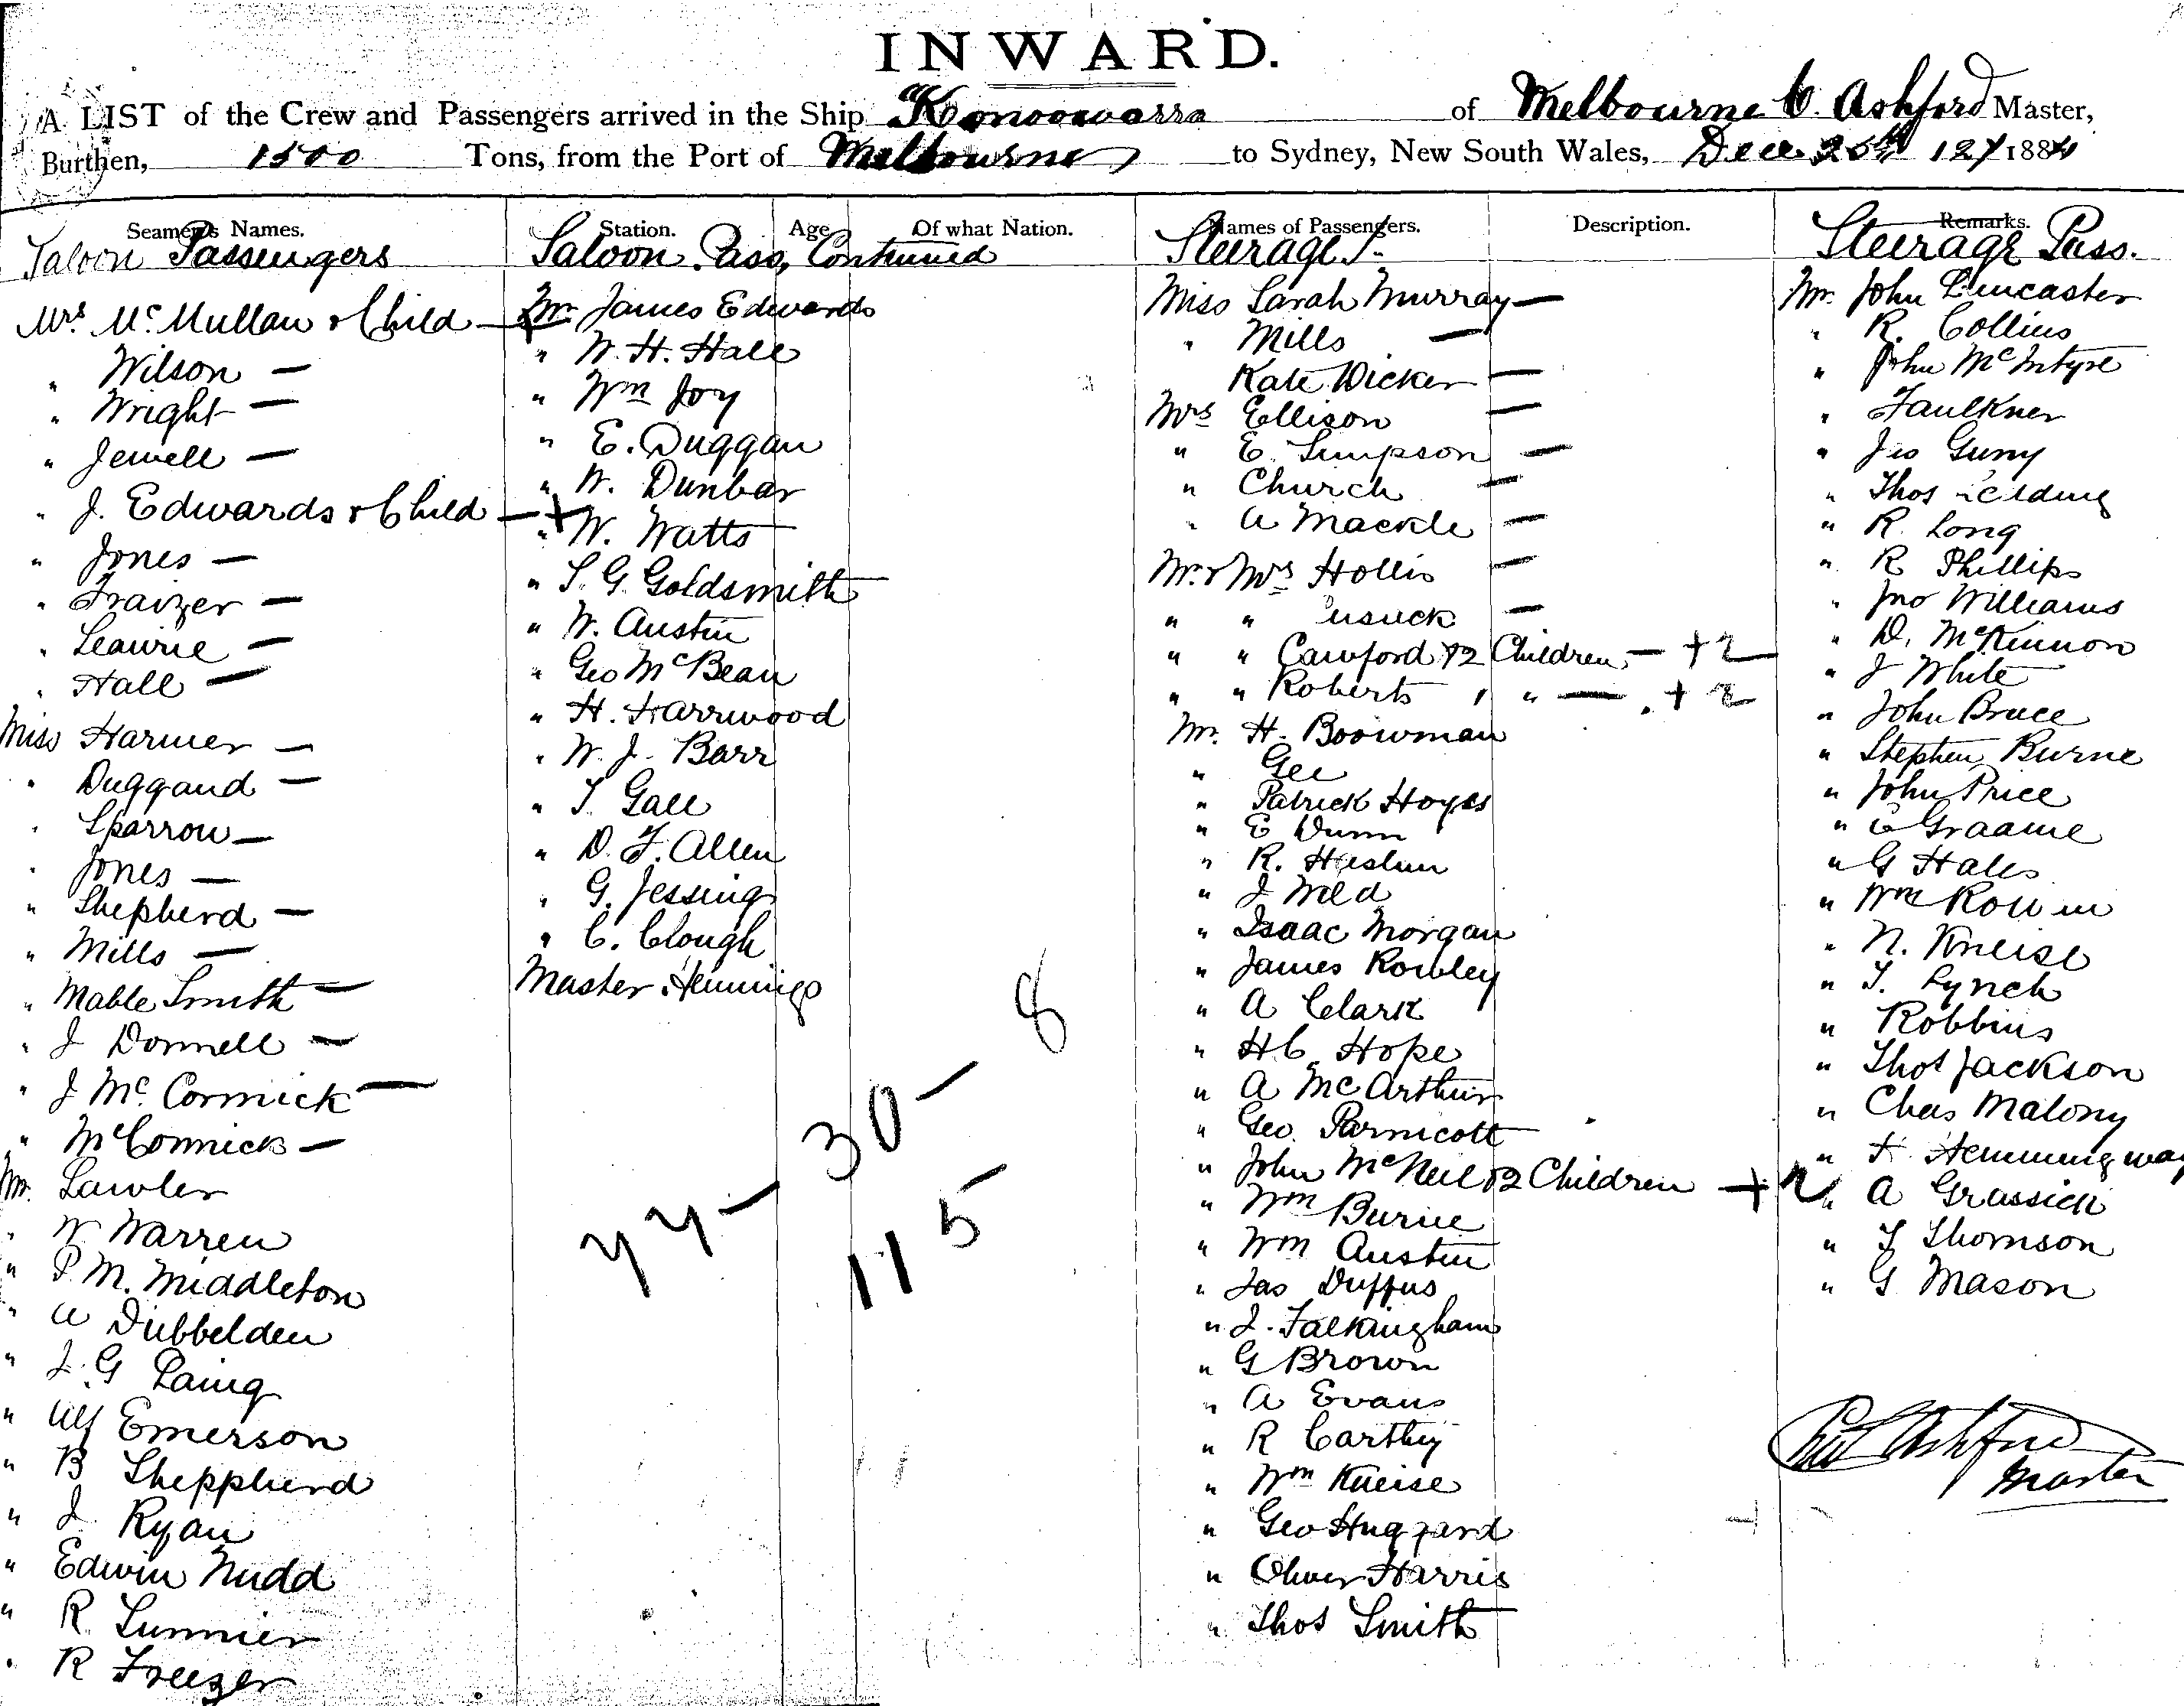 INWARD.
A LIST of the Crew and Passengers arrived in the Ship Konoowarra of Melbourne C. Ashford Master,
Burthen, 1500 Tons, from the Port of Melbourne to Sydney, New South Wales, Dec. 1884
Seamen's Names.
Saloon Passengers
Mrs McMullan & Child —
" Wilson —
" Wright —
" Jewell —
" J. Edwards & Child — +
" Jones —
" Fraizer —
" Leawrie —
" Hall —
Miss Harmer —
" Duggand —
" Sparrow —
" Jones —
" Shepherd —
" Mills —
" Mable Smith —
" J Donnell —
" J McCormick —
" McCormick —
Mr. Lawler
" W Warren
" P. M. Middleton
" A Dubbelden
" J. G Laing
" Alf Emerson
" B Sheppherd
" J Ryan
" Edwin Nudd
" R. Summer
" R Freezer
Station. Age Of what Nation.
Saloon Pass, Continued
Mr James Edwards
" W. H. Hall
" Wm Joy
" E. Duggan
" W. Dunbar
" W. Watts
" S. G. Goldsmith
" W. Austin
" Geo McBean
" H. Harrwood
" W. J. Barr
" T. Gall
" D. F. Allen
" G. Jessing
" C. Clough
Master Hennings
77 — 30 — 8
115
Names of Passengers. Description.
Steerage P.
Miss Sarah Murray —
" Mills —
Kate Wicker —
Mrs Ellison —
" E. Simpson —
" Church —
" A Mackle —
Mr. & Mrs Hollis —
" " usick —
" " Cawford & 2 Children — + 2
" " Roberts " " — + 2
Mr. H. Boowman
" Gee
" Patrick Hoyes
" E Dunn
" R. Haslum
" J Weld
" Isaac Morgan
" James Rowley
" A Clark
" H C Hope
" A McArthur
" Geo. Parnicott
" John McNeil & 2 Children + 2
" Wm Burne
" Wm Austin
" Jas Duffus
" J. Falkingham
" G Brown
" A Evans
" R Carthy
" Wm Kneise
" Geo Huggard
" Oliver Harris
" Thos Smith
Remarks.
Steerage Pass.
Mr. John Lancaster
" R. Collins
" John McIntyre
" Faulkner
" Jio Guny
" Thos
" R. Long
" R Phillips
" Jno Williams
" D. McKinnon
" J White
" John Bruce
" Stephen Burne
" John Price
" C Graame
" G Hales
" Wm
" N. Kneise
" T. Lynch
" Robbins
" Thos Jackson
" Chas Malony
" F. Hemmingway
" A Grassick
" J Thomson
" G Mason
Ashford
Master